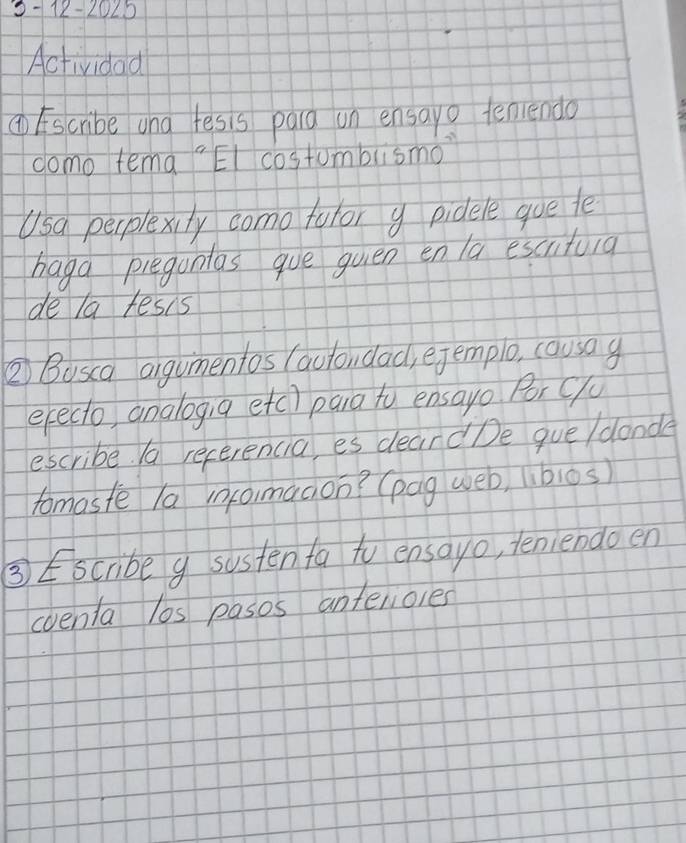 3-12-2025
Actividad
① Escribe una tesis para un ensayo teniendo
como tema "El costumbrismo"
Usa perplexity como tutor y pidele que te
haga preguntas que guien en la escritura
de la tesis
② Busca argumentos (autoridad, ejemplo, causa y
efecto, analogia etc) para tu ensayo. Por c/u
escribe la referencia, es decir ¿De que/donde
tomaste la información? (pag web, libros)
③ Escribe y sustenta tu ensayo, teniendo en
cuenta los pasos anteriores